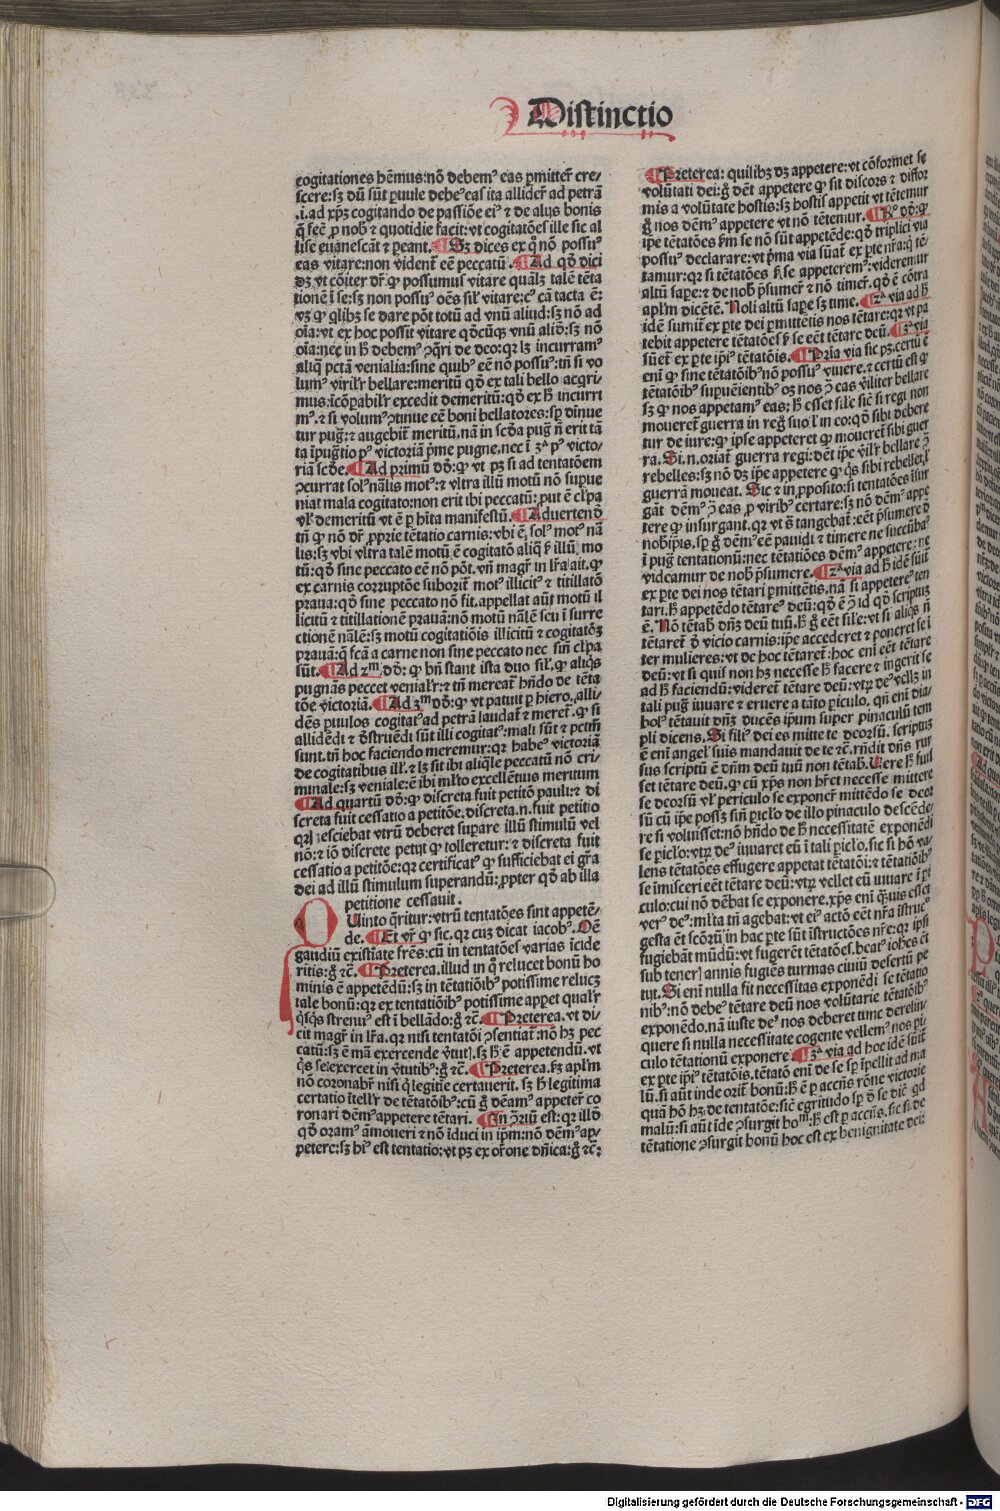 Distinctio
cogitationes hēmus: nō debemꝰ eas ꝑmitter̄ cre-
scere: sꝫ dū sūt ꝑuule debeꝰ eas ita allider̄ ad petrā
.i. ad xp̄ꝫ cogitando de passiōe eiꝰ ⁊ de alijs bonis
q̄ fec̄ ꝓ nob̄ ⁊ quotidie facit: vt cogitatōes ille sic al
lise euanescāt ⁊ ꝑeant. Sꝫ dices ex q̊ nō possuꝰ
eas vitare: non vident̄ eē peccatū. Ad qd̄ dici
dꝫ vt cōiter dr̄ ꝙ possumus vitare qualꝫ talē tēta
tionē ī se: sꝫ non possuꝰ oēs sil̄ vitare: cꝰ cā tacta ē:
vꝫ ꝙ qlibꝫ se dare pōt totū ad vnū aliud: sꝫ nō ad
oīa: vt ex hoc possit vitare qd̄cūqꝫ vnū aliō: sꝫ nō
oīa: nec in h̄ debemꝰ ꝯq̄ri de deo: qꝛ lꝫ incurramꝰ
aliq̄ pctā venialia: sine quibꝰ eē nō possuꝰ: tn̄ si vo
lumꝰ virilr̄ bellare: meritū qd̄ ex tali bello acqri-
mus: īcōpabilr̄ excedit demeritū: qd̄ ex h̄ incurri
mꝰ. ⁊ si volumꝰ ꝯtinue eē boni bellatores: sꝑ dīnue
tur puḡ: ⁊ augebit̄ meritū. nā in scd̄a puḡ n̄ erit tā
ta īpuḡtio pꝰ victoriā pͥme pugne. nec ī 3ᵃ pꝰ victo-
riā scd̄e. Ad primū dō: ꝙ vt pꝫ si ad tentatōem
ꝯcurrat solꝰ nālis motꝰ: ⁊ vltra illū motū nō supue
niat mala cogitatō: non erit ibi peccatū: put ē cl̄pa
vl̄ demeritū vt ē ꝑ hīta manifestū. Aduertend̄
tn̄ ꝙ nō dr̄ ꝓprie tētatio carnis: vbi ē solꝰ motꝰ nā
lis: sꝫ vbi vltra talē motū ē cogitatō aliq̄ p̄ illū mo
tū: qd̄ sine peccato eē nō pōt. vn̄ magr̄ in lr̄a ait. ꝙ
ex carnis corruptōe suborit̄ motꝰ illicitꝰ ⁊ titillatō
praua: qd̄ sine peccato nō fit. appellat aūt motū il
licitū ⁊ titillationē prauā: nō motū nālē seu ī surre
ctionē nālē: sꝫ motū cogitatiōis illicitū ⁊ cogitatōꝫ
prauā: q̄ fcā a carne non sine peccato nec sin̄ cl̄pa
sūt. Ad 2ᵐ. dō: ꝙ bn̄ stant ista duo sil̄. ꝙ aliqs
pugnās peccet venialr̄: ⁊ tn̄ mereat̄ hn̄do de tēta
tōe victoriā. Ad 3ᵐ dō: ꝙ vt patuit ꝑ hiero. alli-
dēs ꝑuulos cogitatꝰ ad petrā laudat̄ ⁊ meret̄. ꝙ si
allidēdi ⁊ ꝺstruēdi sūt illi cogitatꝰ: mali sūt ⁊ petm̄
sunt. tn̄ hoc faciendo meremur: qꝛ habeꝰ victoriā
de cogitatibus ill̄. ⁊ lꝫ sit ibi aliqle peccatū nō cri-
minale: sꝫ veniale: ē ibi ml̄to excellētius meritum
Ad quartū dō: ꝙ discreta fuit petitō pauli: ⁊ di
screta fuit cessatio a petitōe. discreta. n. fuit petitio
qꝛ nesciebat vtrū deberet supare illū stimulū vel
nō: ⁊ iō discrete petijt ꝙ tolleretur: ⁊ discreta fuit
cessatio a petitōe: qꝛ certificatꝰ ꝙ sufficiebat ei gr̄a
dei ad illū stimulum superandū: ꝓpter qd̄ ab illa
petitione cessauit.
QUinto q̄ritur: vtrū tentatōes sint appetē-
de. Et vr̄ ꝙ sic. qꝛ cuꝫ dicat iacobꝰ. Oē
gaudiū existīate fr̄es: cū in tentatōes varias īcide
ritis: g̊ ⁊c̄. Preterea. illud in q̊ relucet bonū ho
minis ē appetēdū: sꝫ in tētatōibꝰ potissime relucꝫ
tale bonū: qꝛ ex tentatiōibꝰ potissime appet qualr̄
q̊sqs strenuꝰ est ī bellādo: g̊ ⁊c̄. Preterea. vt di-
cit magr̄ in lr̄a. qꝛ nisi tentatōi ꝯsentiat̄: nō hꝫ pec
catū: sꝫ ē mā exercende v̄tutꝭ. sꝫ h̄ ē appetendū. vt
q̊s se exercet in v̄tutibꝰ: g̊ ⁊c̄. Preterea. ꝑ apl̄m
nō coronabr̄ nisi q̊ legitie certauerit. sꝫ h̄ legitima
certatio ītell̄r de tētatōibꝰ: cū g̊ deām̄ appeter̄ co
ronari dēmꝰ appetere tētari. In ꝯriū est: qꝛ illd̄
qd̄ oramꝰ āmoueri ⁊ nō īduci in ip̄m: nō dēmꝰ ap
petere: sꝫ hiꝰ est tentatio: vt pꝫ ex or̄one dn̄ica: g̊ ⁊c̄:
Preterea: quilibꝫ dꝫ appetere: vt cōformet se
volūtati dei: g̊ dēt appetere ꝙ sit discors ⁊ diffor
mis a volūtate hostis: sꝫ hostis appetit vt tētemur
g̊ nos dēmꝰ appetere vt nō tētemur. Rͦ dō: ꝙ
ip̄e tētatōes ẜm se nō sūt appetēde: qd̄ triplici via
possuꝰ declarare: vt pͥma via sūat̄ ex ꝑte nr̄a: q̄ tē-
tamur: qꝛ si tētatōes ꝑ se appeterēmꝰ: videremur
altū sape: ⁊ de nob̄ pͥsumer̄ ⁊ nō timer̄. qd̄ ē cōtra
apl̄m dicētē. Noli altū sape sꝫ time. 2ᵃ via ad h̄
idē sumit̄ ex ꝑte dei ꝑmittētis nos tētare: qꝛ vt pa
tebit appetere tētatōes ꝑ se eēt tētare deū. 3ᵃ via
sūet̄ ex ꝑte ip̄iꝰ tētatōis. Pria via sic pꝫ. certū ē
eni ꝙ sine tētatōibꝰ nō possuꝰ viuere. ⁊ certū est ꝙ
tētatōibꝰ supueīentibꝰ oꝫ nos ꝯ eas v̄iliter bellare
sꝫ ꝙ nos appetamꝰ eas: h̄ esset sil̄e sic̄ si regi non
moueret̄ guerra in regͦ suo l̄ in co: qd̄ sibi debere
tur de iure: ꝙ ip̄e appeteret ꝙ moueret̄ sibi guer
ra. Si. n. oriat̄ guerra regi: dēt ip̄e vil̄r bellare ꝯ
rebelles: sꝫ nō dꝫ ip̄e appetere ꝙ q̊s sibi rebellet l̄
guerrā moueat. Sic ⁊ in ꝓposito: si tentatōes īsur
gāt dēmꝰ ꝯ eas ꝓ viribꝰ certare: sꝫ nō dēmꝰ appe
tere ꝙ insurgant. qꝛ vt s̄ tangebat̄: eēt pͥsumere ꝺ
nobip̄is. sꝑ g̊ dēmꝰ eē pauidi ⁊ timere ne succūbaꝰ
ī puḡ tentationū: nec tētatiōes dēmꝰ appetere: ne
videamur de nob̄ pͥsumere. 2ᵃ via ad h̄ idē sūit̄
ex ꝑte dei nos tētari ꝑmittētis. nā si appetereꝰ ten
tari. h̄ appetēdo tētareꝰ deū: qd̄ ē ꝯ id qd̄ scriptuꝫ
ē. Nō tētab̄ dn̄ꝫ deū tuū. h̄ g̊ eēt sil̄e: vt si aliqs n̄
tētaret̄ ꝺ vicio carnis: ip̄e accederet ⁊ poneret se ī
ter mulieres: vt de hoc tētaret̄: hoc eni eēt tētare
deū: vt si quis non hꝫ necesse h̄ facere ⁊ ingerit se
ad h̄ faciendū: videret̄ tētare deū: vtꝝ deꝰ vellꝫ in
tali puḡ iuuare ⁊ eruere a tāto ꝑiculo. qn̄ eni dia-
bolꝰ tētauit dn̄ꝫ ducēs ip̄um super pinaculū tem
pli dicens. Si filiꝰ dei es mitte te deorsū. scriptuꝫ
ē eni angel̄ suis mandauit de te ⁊c̄. rn̄dit dn̄s rur
sus scriptū ē dn̄m deū tuū non tētab. Uere h̄ fuis
set tētare deū. ꝙ cū xp̄s non hr̄et necesse mittere
se deorsū vl̄ periculo se exponer̄ mittēdo se deor
sū cū ip̄e possꝫ sin̄ ꝑicl̄o de illo pinaculo descēde
re si voluisset: nō hn̄do de h̄ necessitatē exponēdi
se ꝑicl̄o: vtꝝ deꝰ iuuaret eū ī tali ꝑicl̄o. sic si hō va-
lens tētatōes effugere appetat tētatōi: ⁊ tētatiōibꝰ
se īmisceri eēt tētare deū: vtꝝ vellet eū iuuare ī ꝑi
culo: cui nō dēbat se exponere. xp̄s eni q̄uis esset
verꝰ deꝰ: ml̄ta tn̄ agebat: vt eiꝰ actō eēt nr̄a īstrucꝰ
gesta ēt scōꝝ in hac ꝑte sūt īstructiōes nr̄e: qꝛ ip̄si
fugiebāt mūdū: vt fugerēt tētatōes. beatꝰ ioh̄es ēt
sub tenerꝭ annis fugiēs turmas ciuiū desertū pe
tijt. Si eni nulla fit necessitas exponēdi se tētatio
nibꝰ: nō debeꝰ tētare deū nos volūtarie tētatōibꝰ
exponēdo. nā iuste deꝰ nos deberet tunc derelin-
quere si nulla necessitate cogente vellemꝰ nos pi-
culo tētationū exponere. 3ᵃ via ad hoc idē sūit̄
ex ꝑte ip̄iꝰ tētatōis. tētatō eni de se sꝑ īpellit ad ma
lū. si aūt inde orit̄ bonū: h̄ ē ꝑ accn̄s rōne victorie
quā hō hꝫ de tentatōe: sic̄ egritudo sꝑ ꝺ se dic̄ qd
malū: si aūt īde ꝯsurgit boᵐ: h̄ est ꝑ accn̄s. sic si de
tētatione ꝯsurgit bonū hoc est ex benignitate dei:
Digitalisierung gefördert durch die Deutsche Forschungsgemeinschaft - DFG